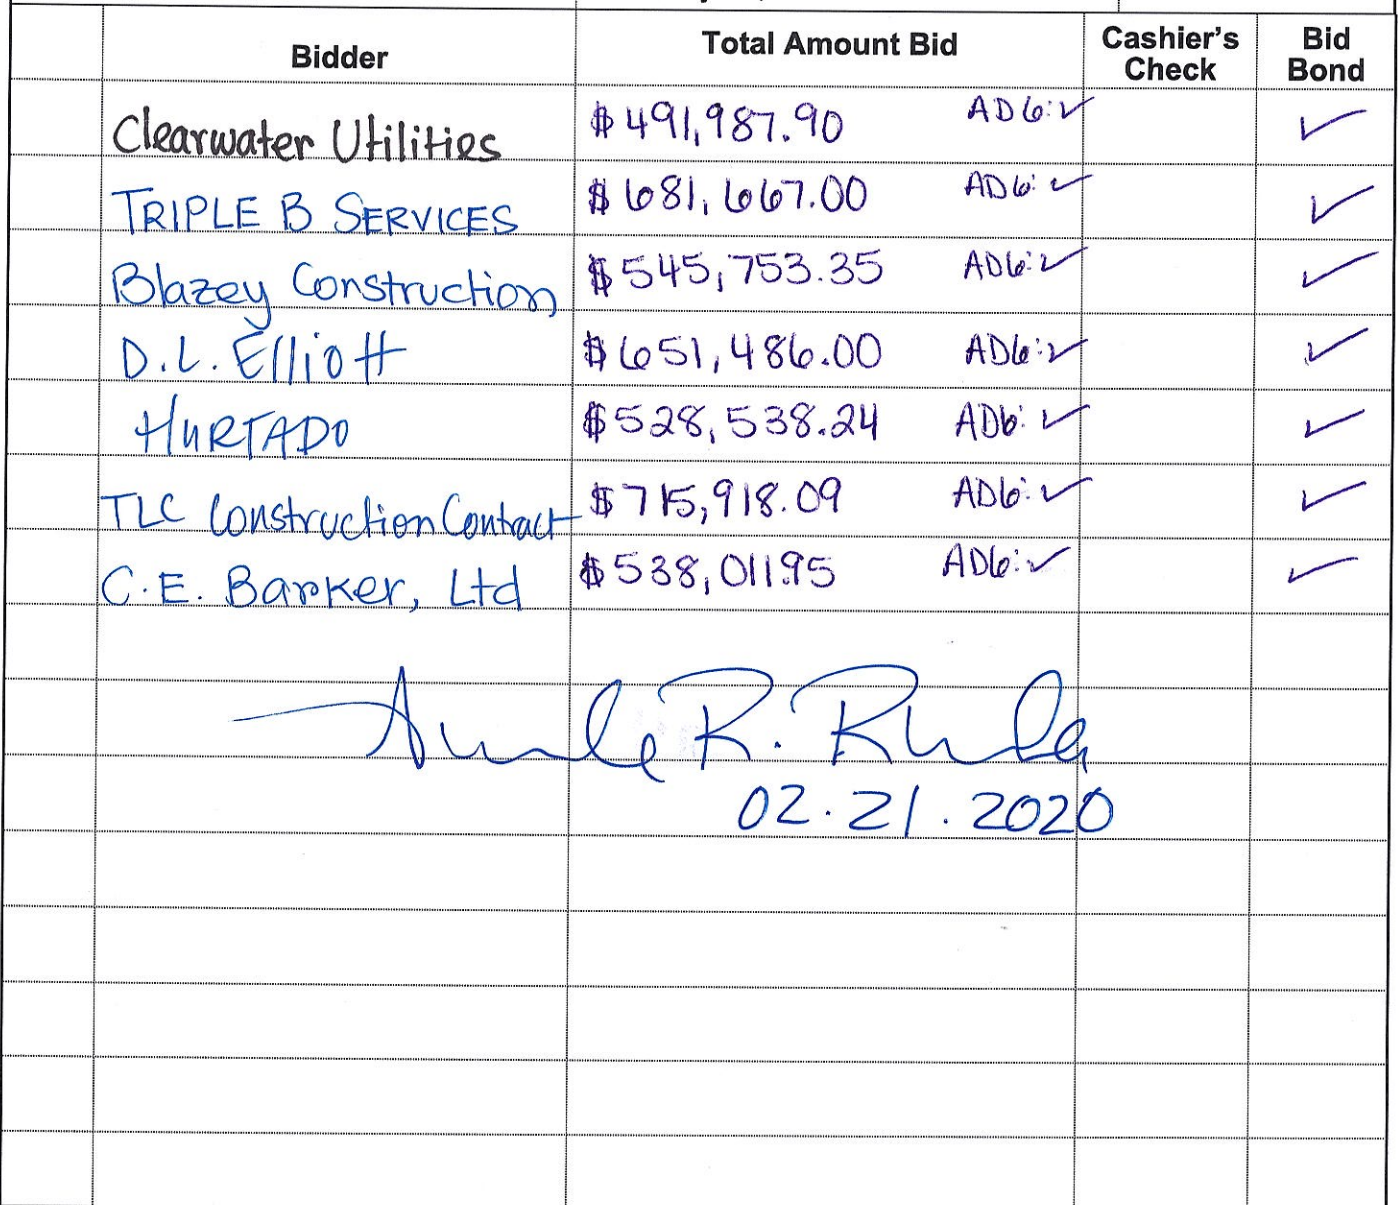 Bidder Total Amount Bid Cashier's Check Bid Bond
Clearwater Utilities $491,987.90 AD6:✓ ✓
TRIPLE B SERVICES $681,667.00 AD6:✓ ✓
Blazey Construction $545,753.35 AD6:✓ ✓
D.L. Elliott $651,486.00 AD6:✓ ✓
HURTADO $528,538.24 AD6:✓ ✓
TLC Construction Contract $715,918.09 AD6:✓ ✓
C.E. Barker, Ltd $538,011.95 AD6:✓ ✓
R.
02.21.2020